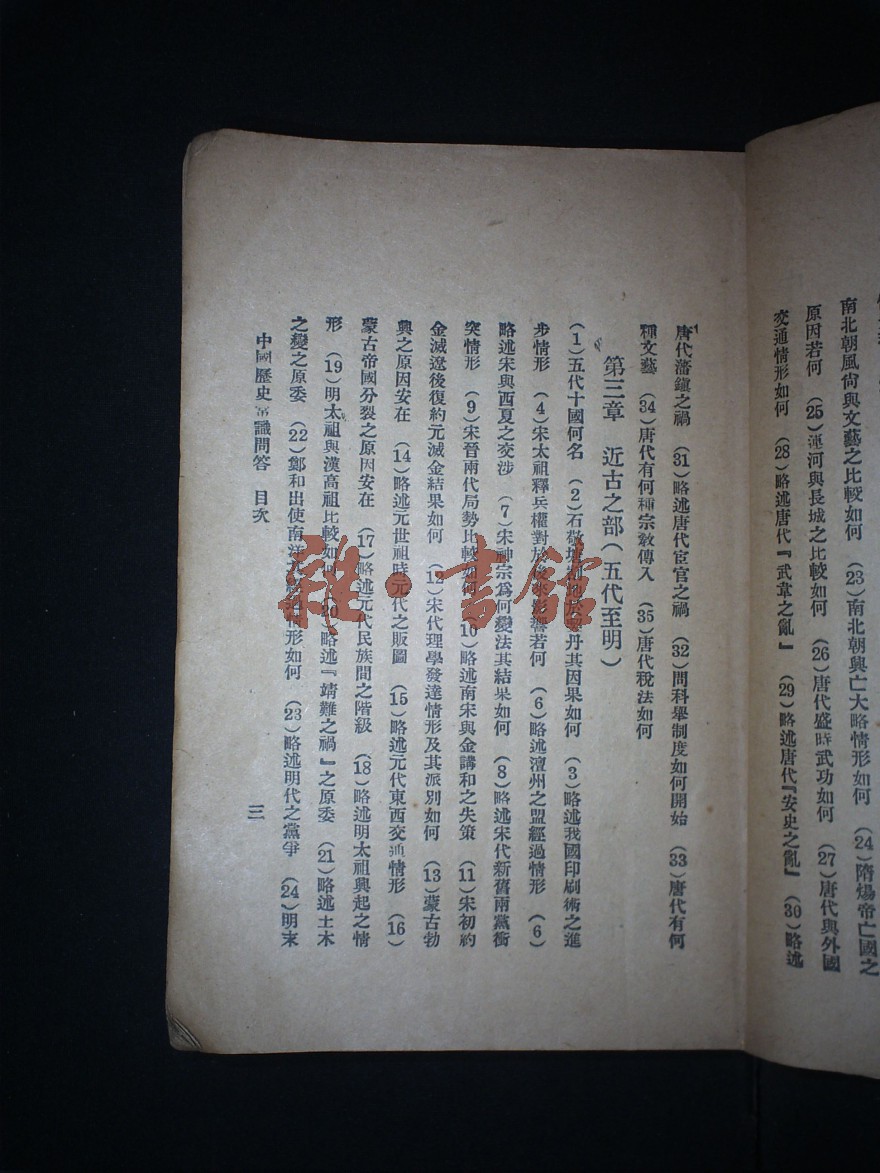 南北朝風尙與文藝之比較如何　(23)南北朝興亡大略情形如何　(24)隋煬帝亡國之
原因若何　(25)運河與長城之比較如何　(26)唐代盛時武功如何　(27)唐代與外國
交通情形如何　(28)略述唐代『武韋之亂』　(29)略述唐代『安史之亂』　(30)略述
唐代藩鎭之禍　(31)略述唐代宦官之禍　(32)問科舉制度如何開始　(33)唐代有何
種文藝　(34)唐代有何種宗敎傳入　(35)唐代稅法如何
第三章　近古之部(五代至明)
(1)五代十國何名　(2)石敬瑭割地於契丹其因果如何　(3)略述我國印刷術之進
步情形　(4)宋太祖釋兵權對於後來影響若何　(6)略述澶州之盟經過情形　(6)
略述宋與西夏之交涉　(7)宋神宗爲何變法其結果如何　(8)略述宋代新舊兩黨衝
突情形　(9)宋晉兩代局勢比較如何　(10)略述南宋與金講和之失策　(11)宋初約
金滅遼後復約元滅金結果如何　(12)宋代理學發達情形及其派別如何　(13)蒙古勃
興之原因安在　(14)略述元世祖時元代之販圖　(15)略述元代東西交通情形　(16)
蒙古帝國分裂之原因安在　(17)略述元代民族間之階級　(18)略述明太祖興起之情
形　(19)明太祖與漢高祖比較如何　(20)略述『靖難之禍』之原委　(21)略述土木
之變之原委　(22)鄭和出使南洋　情形如何　(23)略述明代之黨爭　(24)明末
中國歷史常識問答　目次
三
雜·書館